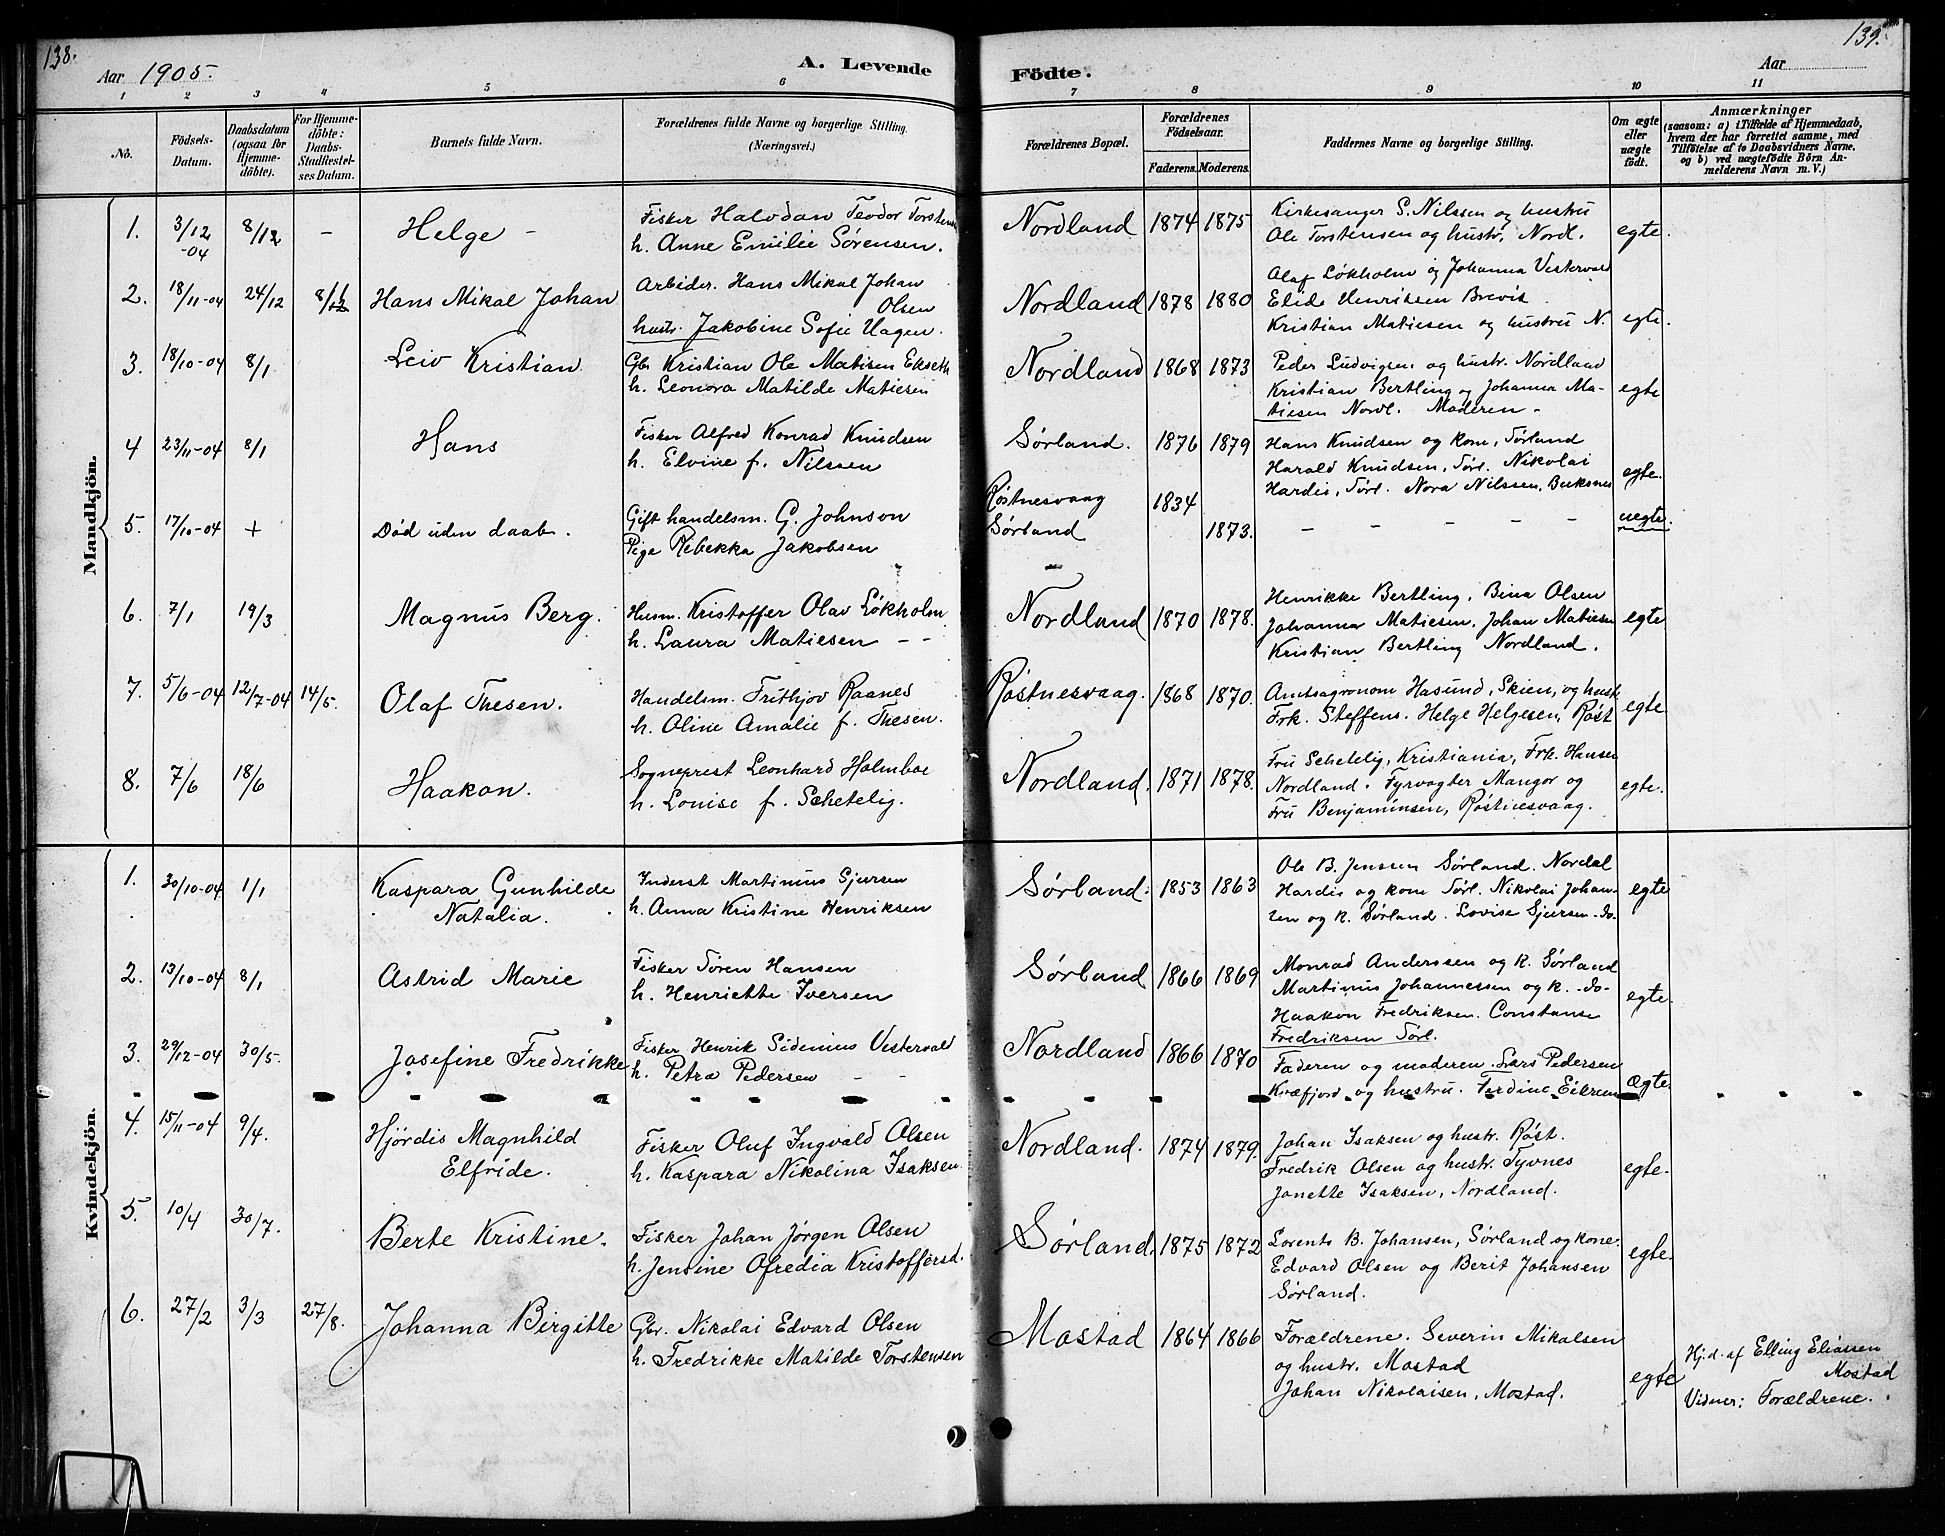 138.
139.
Aar 1905.
A. Levende
Födte.
Aar
1 2 3 4 5 6 7 8 9 10 11
No.
Födsels-Datum.
Daabsdatum (ogsaa for Hjemme-döbte).
For Hjemme-döbte: Daabs-Stadfæstel-ses Datum.
Barnets fulde Navn.
Forældrenes fulde Navne og borgerlige Stilling.
(Næringsvei.)
Forældrenes Bopæl.
Forældrenes Födselsaar.
Faderens. Moderens.
Faddernes Navne og borgerlige Stilling.
Om ægte eller uægte födt.
Anmærkninger
(saasom: a) i Tilfælde af Hjemmedaab,
hvem der har forrettet samme, med
Tilföielse af to Daabsvidners Navne,
og b) ved uægtefödte Börn An-
melderens Navn m. V.)
Mandkjön.
1. 3/12 -04 8/12 - Helge -
Fisker Halvdan Teodor Torstens
h. Anne Emilie Sørensen.
Nordland 1874 1875
Kirkesanger S. Nilssen og hustru
Ole Torstensen og hustr. Nordl.
egte.
2. 18/11-04 24/12 8/1 Hans Mikal Johan
Arbeider. Hans Mikal Johan
Olsen
hustr. Jakobine Sofie Hagen.
Nordland 1878 1880
Olaf Løkholm og Johanna Vestervald
Elide Henriksen Brevik
Kristian Matiesen og hustru N.
egte.
3. 18/10-04 8/1 Leiv Kristian
Gbr Kristian Ole Matisen Ekseth
h. Leonora Matilde Matiesen
Nordland 1868 1873
Peder Ludvigsen og hustr. Nordland
Kristian Bertling og Johanna Ma-
tiesen Nordl. Moderen -
egte
4 23/11-04 8/1 Hans
Fisker Alfred Konrad Knudsen
h. Elvine f. Nilssen
Sørland. 1876 1879
Hans Knudsen og kone, Sørland
Harald Knudsen, Sørl. Nikolai
Hardis, Sørl. Nora Nilssen, Buksnes
egte.
5. 17/10-04 + Død uden daab.
Gift handelsm. G. Johnson
Pige Rebekka Jakobsen
Røstnesvaag 1834
Sørland 1873.
- - - - -
uegte.
6. 7/1 19/3 Magnus Berg.
Husm. Kristoffer Olav Løkholm
h. Laura Matiesen - -
Nordland 1870 1878.
Henrikke Bertling, Bina Olsen
Johanna Matiesen, Johan Matiesen
Kristian Bertling Nordland.
egte
7. 5/6-04 12/7-04 14/5. Olaf Thesen.
Handelsm. Frithjov Raanes
h. Oline Amalie f. Thesen.
Røstnesvaag. 1868 1870.
Amtsagronom Hasund, Skien, og hust.
Frk. Steffens. Helge Helgesen, Røst
egte
8. 7/6 18/6 Haakon.
Sogneprest Leonhard Holmboe
h. Louise f. Schetelig.
Nordland. 1871 1878.
Fru Schetelig, Kristiania, Frk. Hansen
Nordland. Fyrvogter Mangor og
Fru Benjaminsen, Røstnesvaag.
egte.
Kvindekjön.
1. 30/10-04 1/1 Kaspara Gunhilde
Natalia.
Inderst Martinus Sjursen
h. Anna Kristine Henriksen
Sørland. 1853 1863
Ole B. Jenssen Sørland. Nordal
Hardis og kone Sørl. Nikolai Johan-
sen og k. Sørland. Lovise Sjursen -do-
egte
2. 13/10-04 8/1 Astrid Marie
Fisker Søren Hansen
h. Henriette Iversen
Sørland 1866 1869
Monrad Anderssen og k. Sørland
Martinus Johannessen og k. -do-
Haakon Fredriksen. Constanse
Fredriksen Sørl.
egte.
3. 29/12-04 30/5. Josefine Fredrikke
Fisker Henrik Sidenius Vestervald
h. Petra Pedersen - -
Nordland 1866 1870
Faderen og moderen. Lars Pedersen
Kvæfjord og hustru. Ferdine Eikrem
Ægte.
4. 15/11-04 9/4. Hjørdis Magnhild
Elfride.
Fisker Oluf Ingvald Olsen
h. Kaspara Nikolina Isaksen.
Nordland. 1874 1879.
Johan Isaksen og hustr. Røst.
Fredrik Olsen og hustr. Tyvnes
Janette Isaksen, Nordland.
egte.
5. 10/4 30/7. Berte Kristine.
Fisker Johan Jørgen Olsen
h. Jensine Ofredia Kristoffersd.
Sørland. 1875 1872
Lorents B. Johansen, Sørland og kone.
Edvard Olsen og Berit Johansen
Sørland.
egte.
6. 27/2 3/3 27/8. Johanna Birgitte
Gbr. Nikolai Edvard Olsen
h. Fredrikke Matilde Torstensen
Mostad 1864 1866
Forældrene. Severin Mikalsen
og hustr. Mostad
Johan Nikolaisen, Mostad.
egte
Hj.d. af Elling Eliassen
Mostad
Vidner: Forældrene.